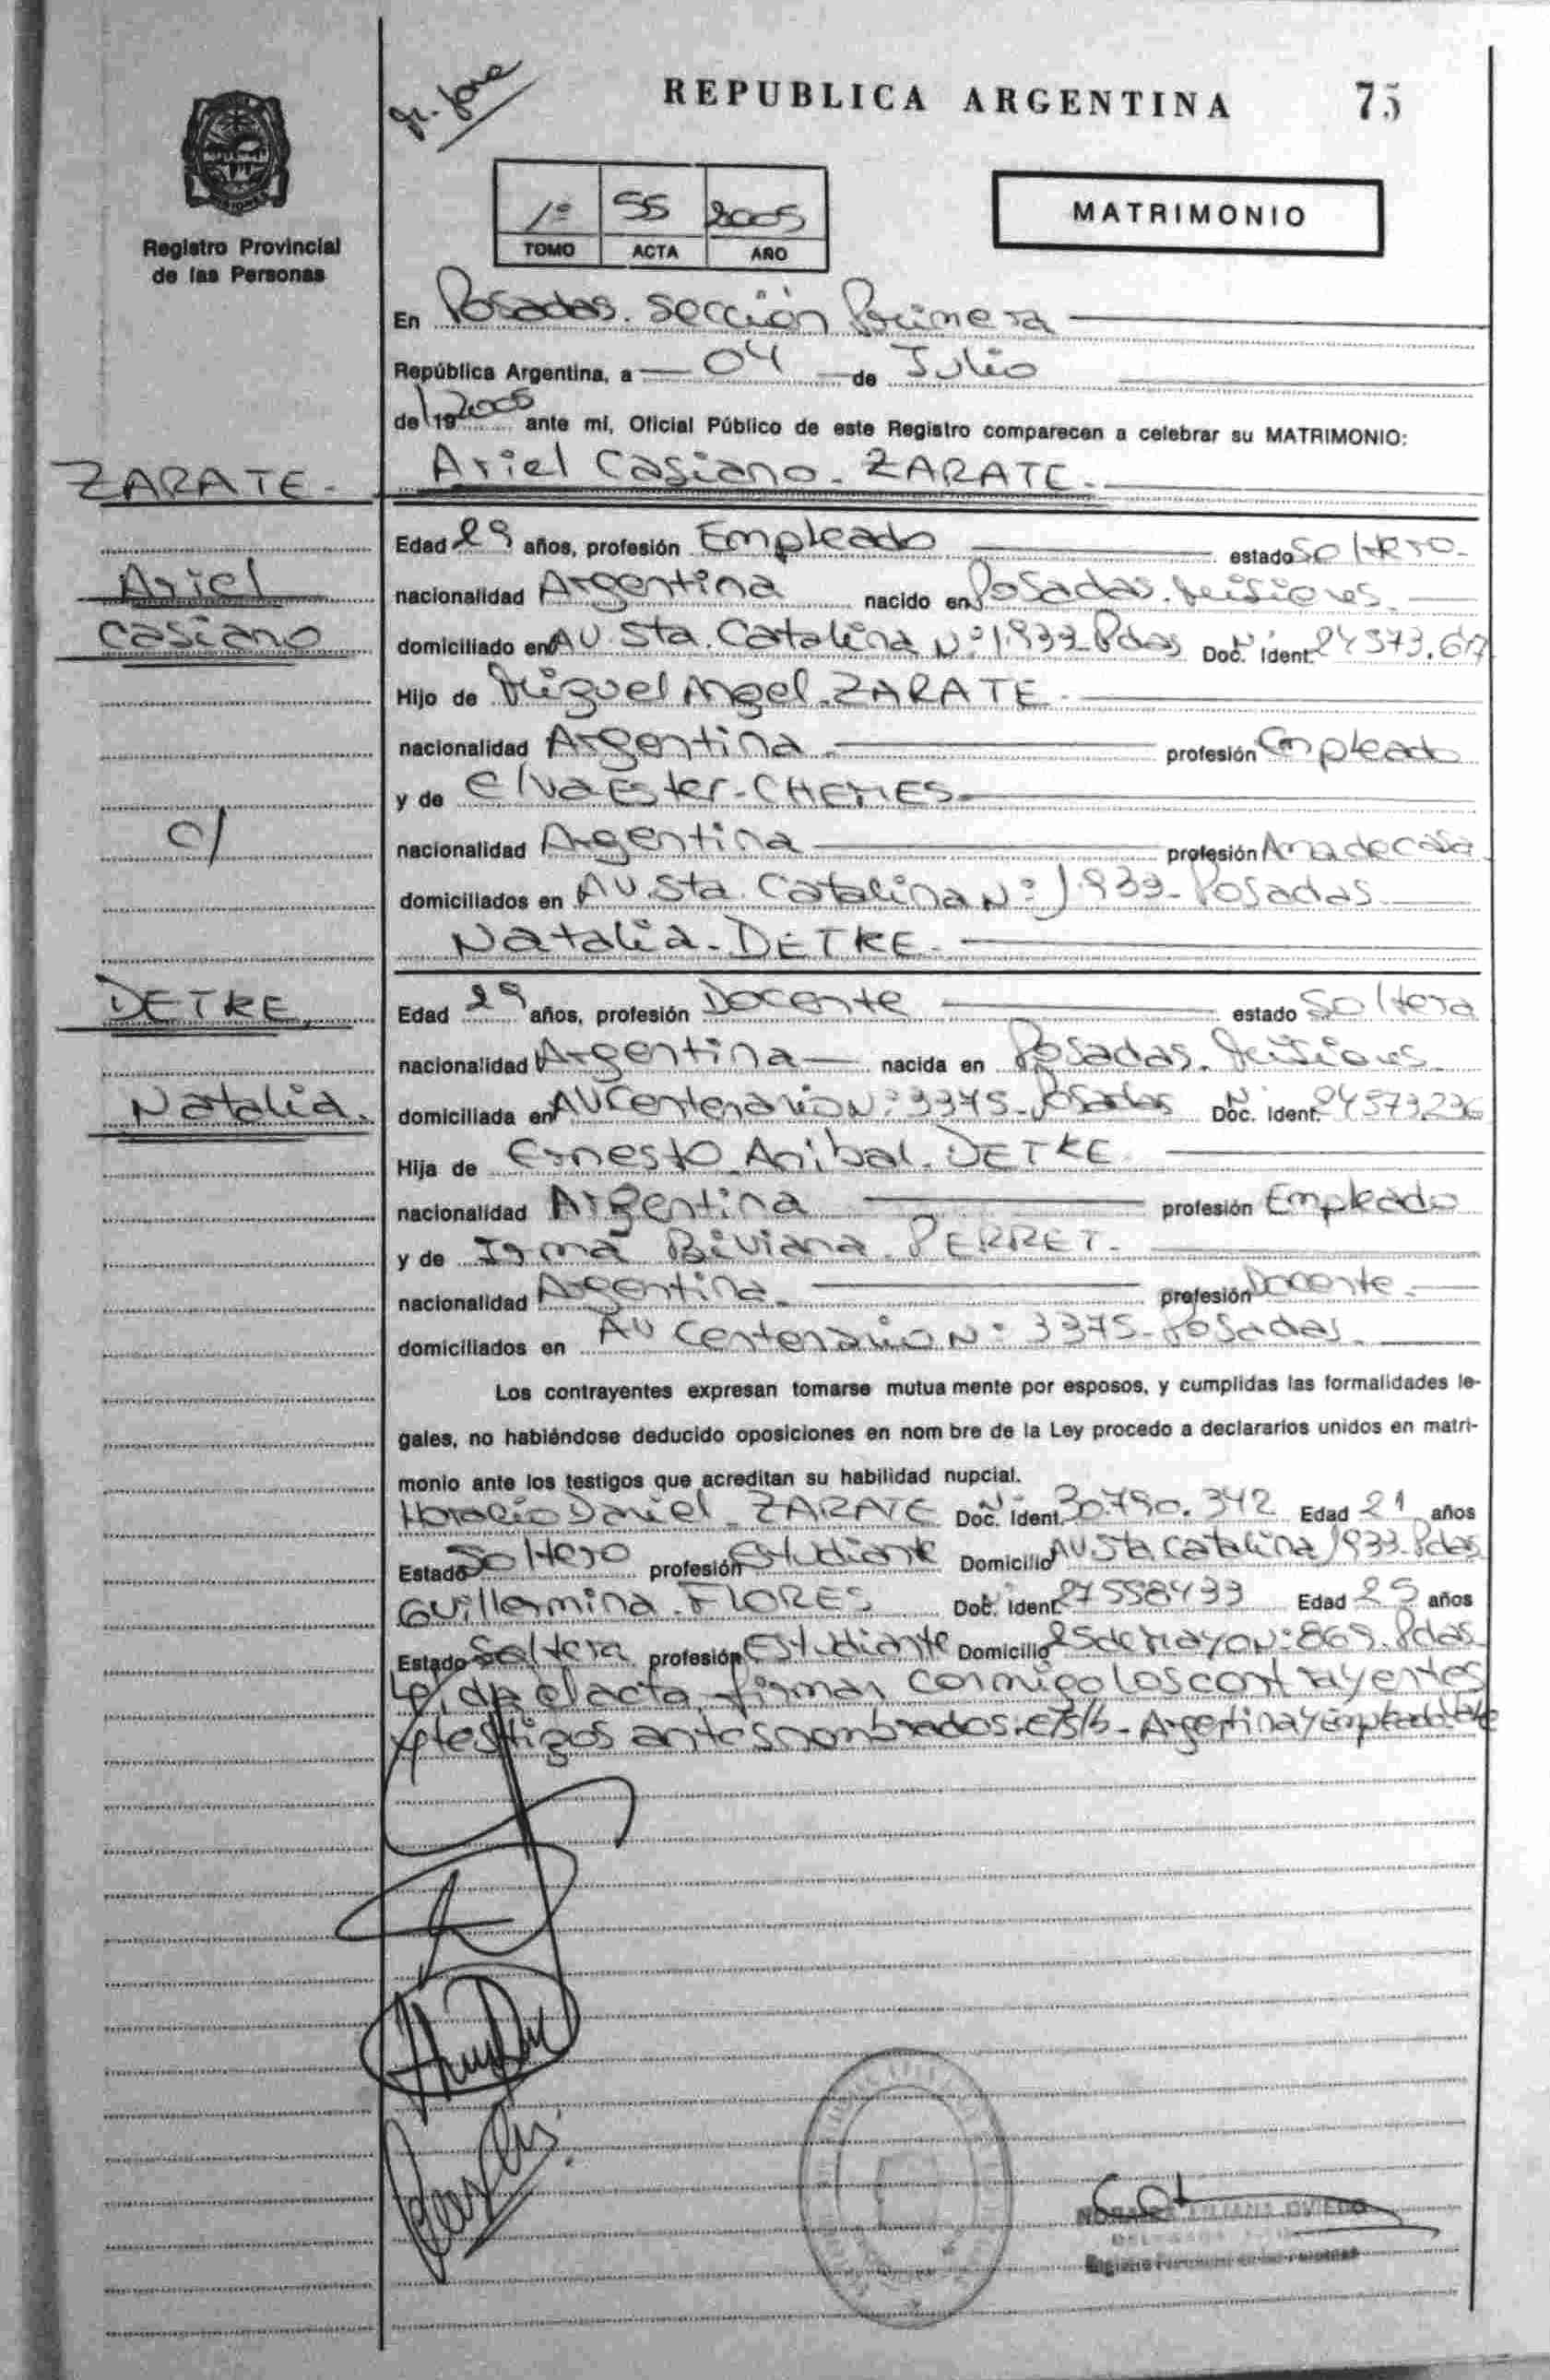 REPUBLICA ARGENTINA 75
Registro Provincial
de las Personas
1º 55 2005
TOMO ACTA AÑO
MATRIMONIO
En Posadas. Sección Primera
República Argentina, a 04 de Julio
de 19 2005 ante mí, Oficial Público de este Registro comparecen a celebrar su MATRIMONIO:
ZARATE.
Ariel Casiano. ZARATE.
Edad 29 años, profesión Empleado estado Soltero.
Ariel
nacionalidad Argentina nacido en Posadas. Misiones.
Casiano
domiciliado en AV. Sta. Catalina Nº 1.933 Pdas Doc. Ident. Nº 24573.
Hijo de Miguel Angel ZARATE.
nacionalidad Argentina profesión Empleado
y de Elva Ester - CHEMES.
c/
nacionalidad Argentina profesión Ama de casa
domiciliados en AV. Sta. Catalina Nº 1.933 - Posadas.
Natalia. DETKE.
DETKE,
Edad 29 años, profesión Docente estado Soltera
nacionalidad Argentina nacida en Posadas. Misiones
Natalia.
domiciliada en AV Centenario Nº 3375 - Posadas Doc. Ident. Nº 24573236
Hija de Ernesto Anibal. DETKE
nacionalidad Argentina profesión Empleado
y de Irma Biviana PERRET.
nacionalidad Argentina profesión Docente.
domiciliados en AV Centenario Nº 3375 - Posadas.
Los contrayentes expresan tomarse mutua mente por esposos, y cumplidas las formalidades le-
gales, no habiéndose deducido oposiciones en nom bre de la Ley procedo a declararlos unidos en matri-
monio ante los testigos que acreditan su habilidad nupcial.
Horacio Daniel ZARATE Doc. Ident. Nº 30.790.342 Edad 21 años
Estado Soltero profesión Estudiante Domicilio AV. Sta Catalina 1933. Pdas
Guillermina. FLORES Doc. Ident. 27558433 Edad 25 años
Estado Soltera profesión Estudiante Domicilio 25 de Mayo Nº 869. Pdas
Leida el acta firman conmigo los contrayentes
y testigos antes nombrados. e/s/b - Argentina y empleado Vale
LILIANA OVIEDO